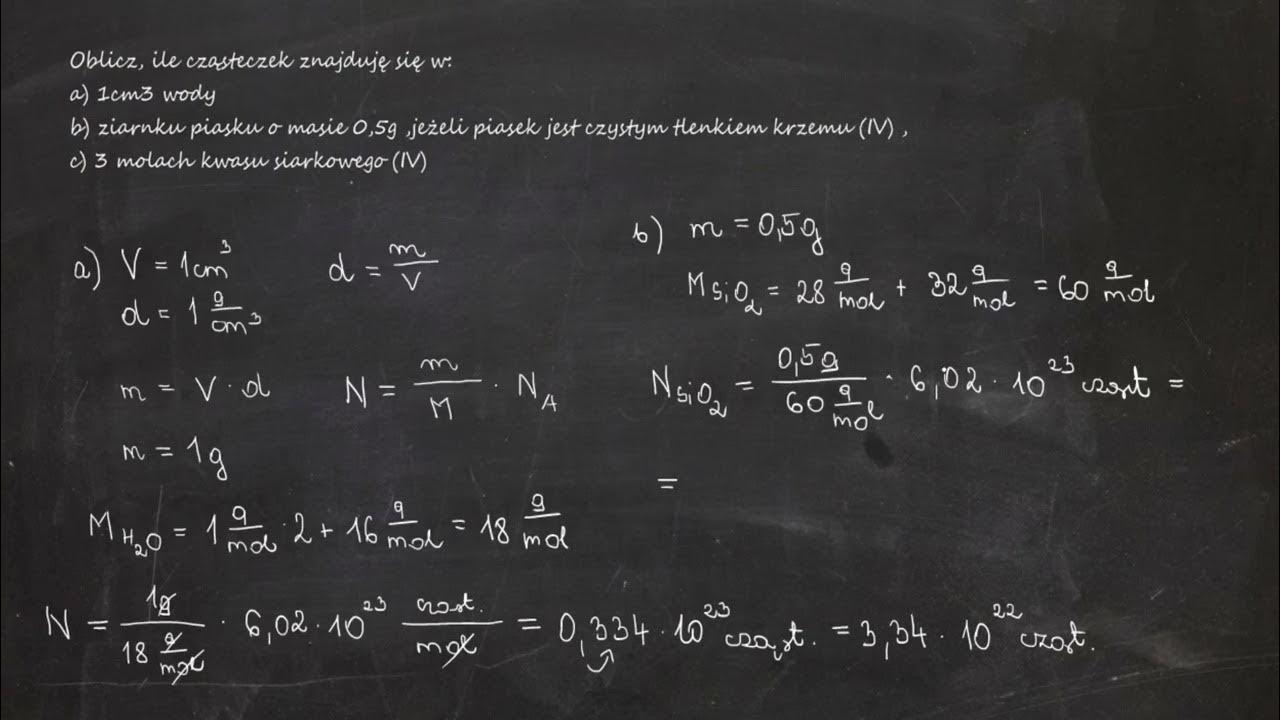 Oblicz, ile cząsteczek znajduję się w:
a) 1cm3 wody
b) ziarnku piasku o masie 0,5g ,jeżeli piasek jest czystym tlenkiem krzemu (IV) ,
c) 3 molach kwasu siarkowego (IV)
a) V = 1cm³
d = m/V
d = 1 g/cm³
m = V · d
N = m/M · N_A
m = 1g
M_H₂O = 1 g/mol · 2 + 16 g/mol = 18 g/mol
N = 1g/18 g/mol · 6,02 · 10²³ cząst./mol = 0,334 · 10²³ cząst. = 3,34 · 10²² cząst.
b) m = 0,5g
M_SiO₂ = 28 g/mol + 32 g/mol = 60 g/mol
N_SiO₂ = 0,5g/60 g/mol · 6,02 · 10²³ cząst =
=